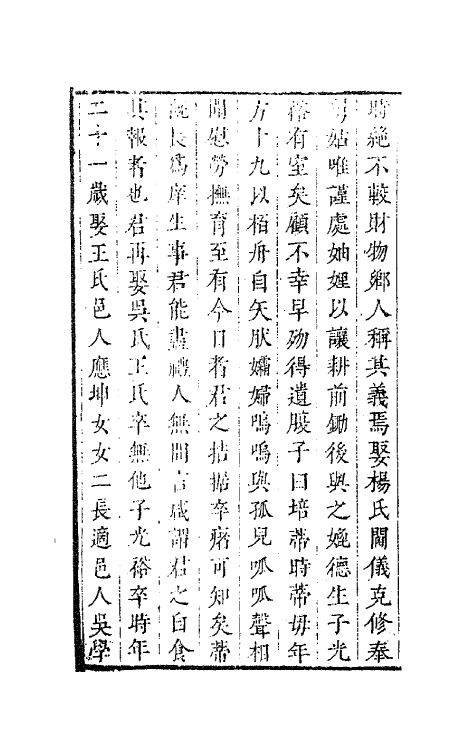 時絶不較財物鄉人稱其義焉娶楊氏閫儀克修奉
舅姑唯謹處妯娌以讓耕前鋤後與之媲德生子光
裕有室矣顧不幸早歿得遺腹子曰培蒂時蒂毋年
方十九以栢舟自矢肰孀婦嗚嗚與孤兒呱呱聲相
聞慰勞撫育至有今日者君之拮据卒瘏可知矣蒂
既長爲庠生事君能盡禮人無間言咸謂君之自食
其報者也君再娶吳氏王氏卒無他子光裕卒時年
二十一歲娶王氏邑人應坤女女二長適邑人吳學